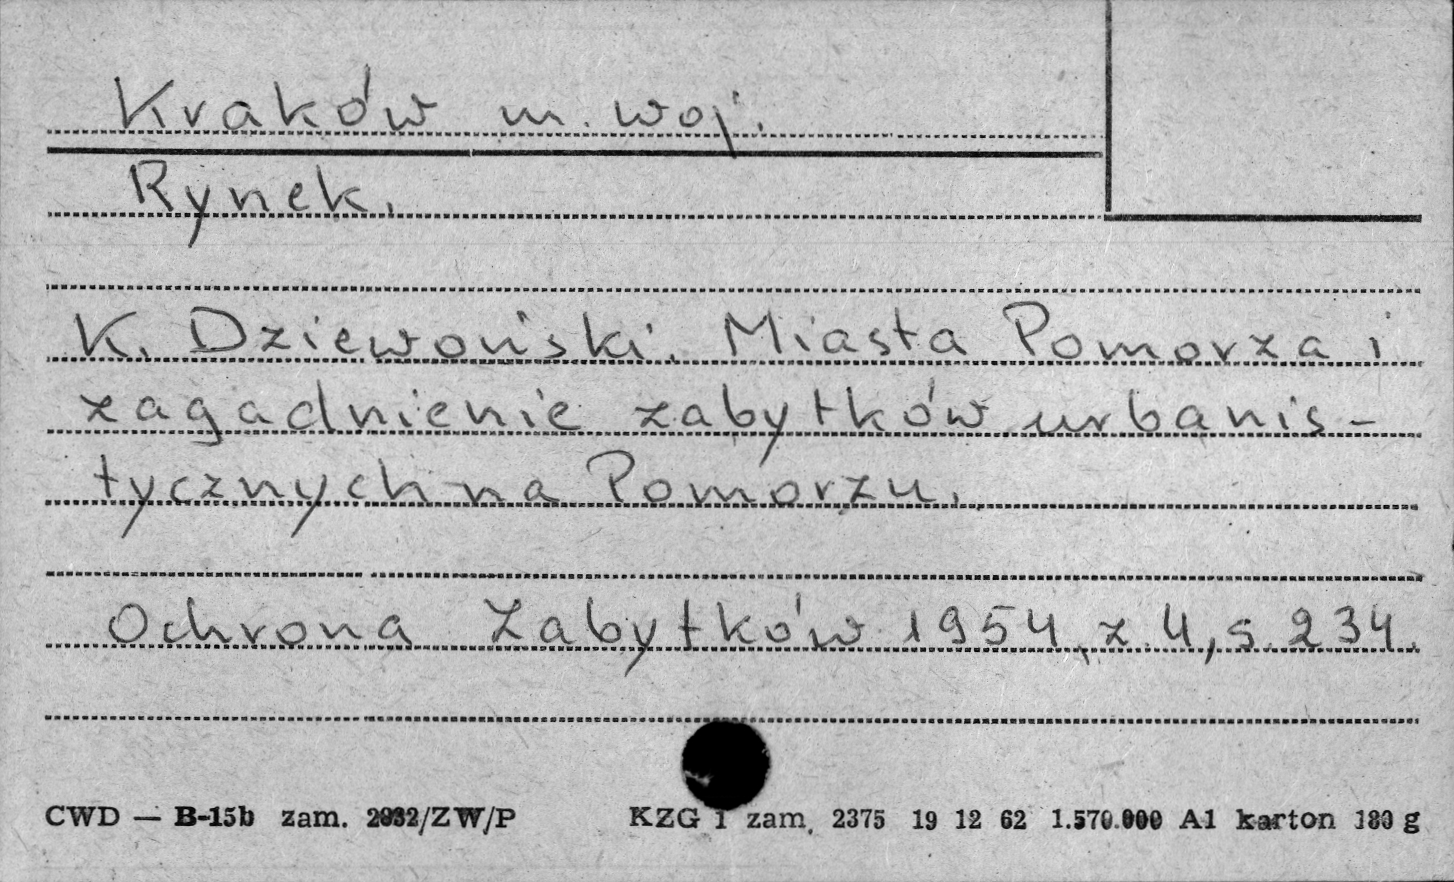 Kraków m. woj.
Rynek.
K. Dziewoński. Miasta Pomorza i
zagadnienie zabytków urbanis-
tycznych na Pomorzu.
Ochrona Zabytków 1954, z. 4, s. 234.
CWD — B-15b zam. 2932/ZW/P KZG 1 zam. 2375 19 12 62 1.570.000 A1 karton 180 g